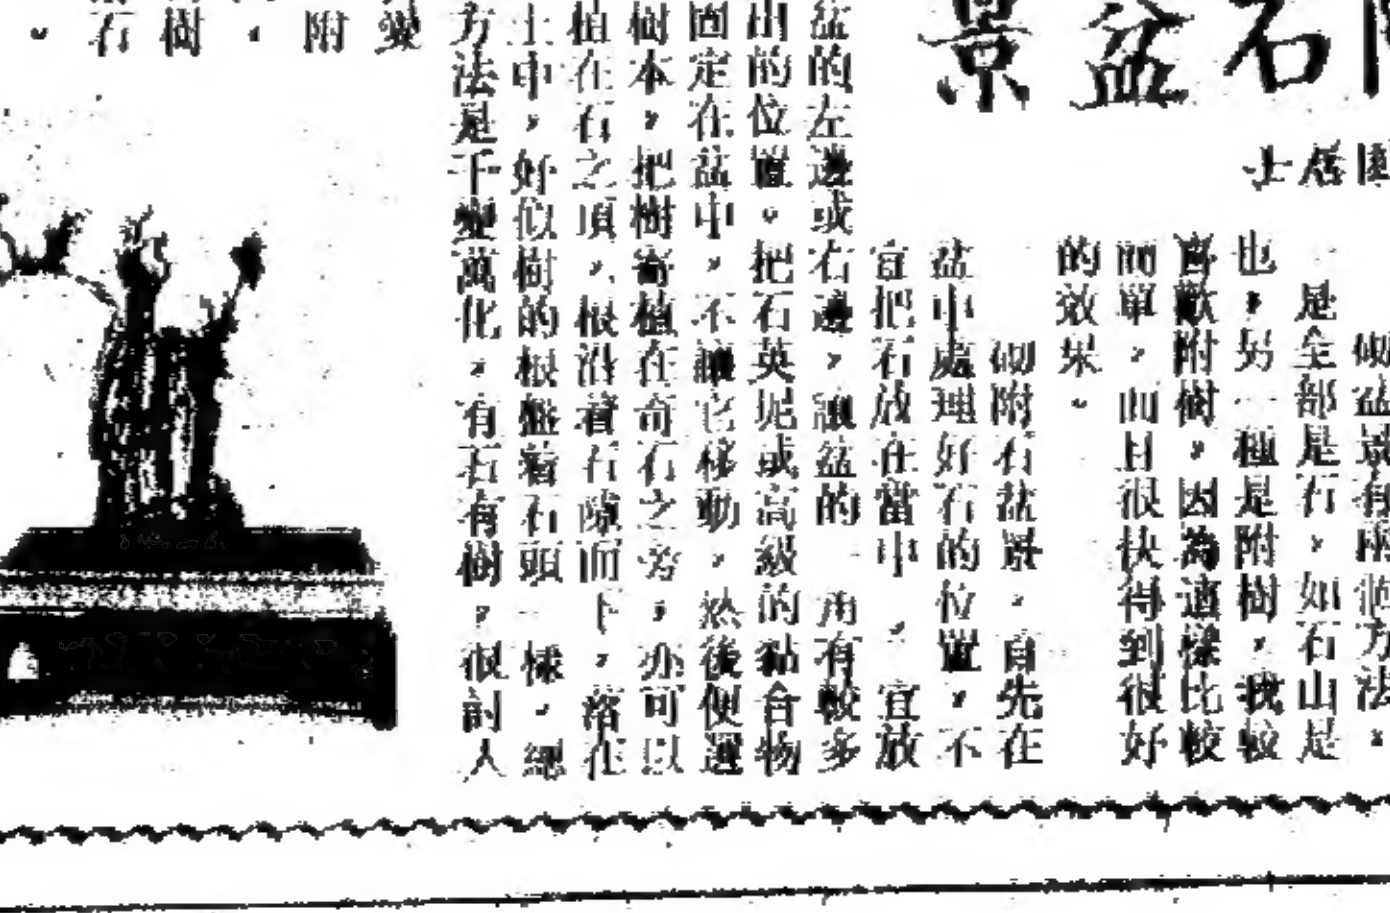 石盆景
居士
砌盆景有兩個方法。
是全部是石,如石山是
也,另一種是附樹,我較
喜歡附樹,因為這樣比較
簡單,而且很快得到很好
的效果。
砌附石盆景,首先在
盆中處理好石的位置,不
宜把石放在當中,宜放
盆的左邊或右邊,讓盆的一角有較多
的位置。把石英坭或高級的黏合物
固定在盆中,不讓它移動,然後便選
樹本,把樹寄植在奇石之旁,亦可以
植在石之頂,根沿着石隙而下,落在
土中,好似樹的根盤着石頭一樣。總
方法是千變萬化,有石有樹,很討人
變
附
樹
石